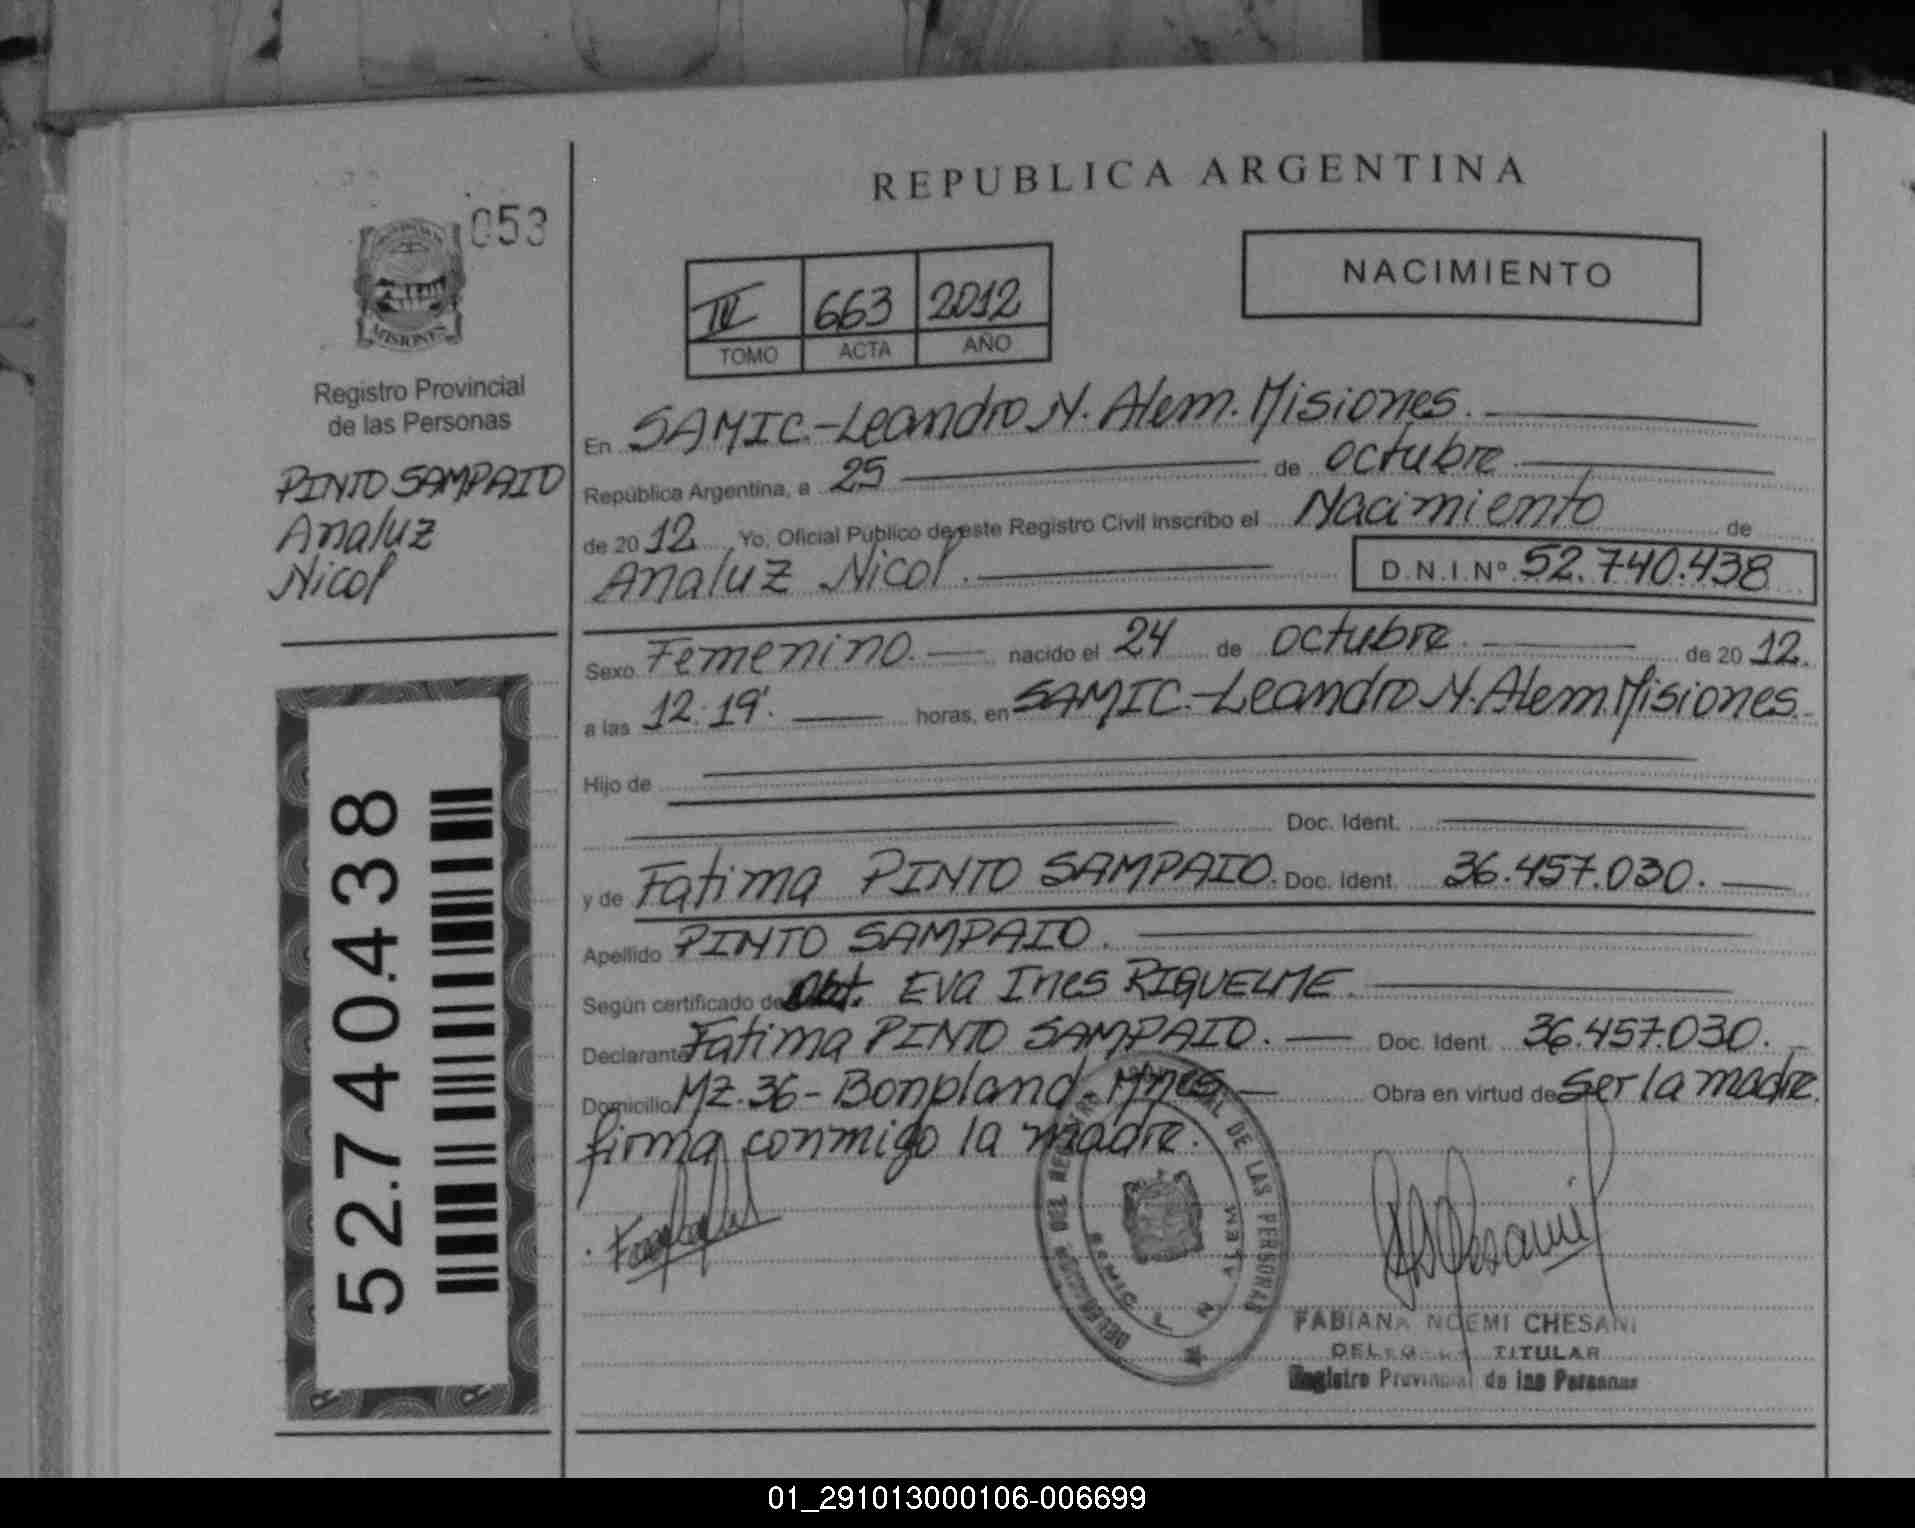 REPUBLICA ARGENTINA
053
NACIMIENTO
IV 663 2012
TOMO ACTA AÑO
MISIONES
Registro Provincial
de las Personas
PINTO SAMPAIO
Analuz
Nicol
52.740.438
En SAMIC.-Leandro N. Alem. Misiones.
República Argentina, a 25 de octubre
de 2012 Yo, Oficial Público de este Registro Civil inscribo el Nacimiento de
Analuz Nicol. D.N.I.Nº 52.740.438
Sexo Femenino. nacido el 24 de octubre. de 2012.
a las 12:19'. horas, en SAMIC.-Leandro N. Alem. Misiones.
Hijo de
Doc. Ident.
y de Fatima PINTO SAMPAIO. Doc. Ident. 36.457.030.
Apellido PINTO SAMPAIO.
Según certificado de Obt. Eva Ines RIQUELME.
Declarante Fatima PINTO SAMPAIO. Doc. Ident. 36.457.030.
Domicilio Mz. 36 - Bonpland Mnes Obra en virtud de ser la madre.
firma conmigo la madre.
DE LAS PERSONAS
SAMIC L N ALEM
FABIANA NOEMI CHESANI
TITULAR
Registro Provincial de las Personas
01_291013000106-006699